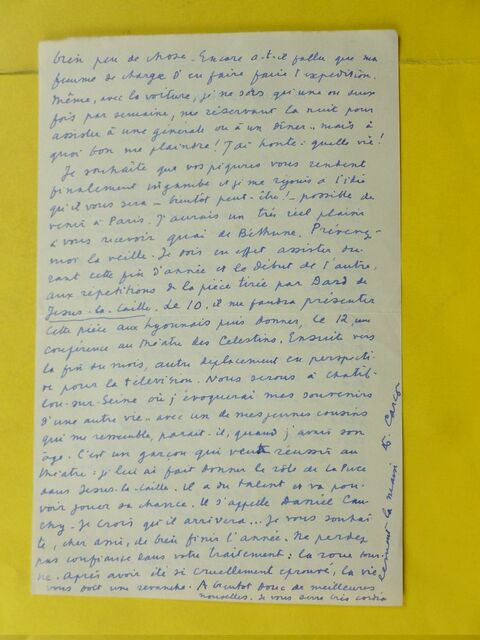 bien peu de chose. Encore a-t-il fallu que ma
femme se charge d'en faire faire l'expédition.
Même, avec la voiture, je ne sors qu'une ou deux
fois par semaine, me réservant la nuit pour
assister à une générale ou à un dîner.. mais à
quoi bon me plaindre! J'ai honte: quelle vie!
Je souhaite que vos piqûres vous rendent
finalement ingambe et je me réjouis à l'idée
qu'il vous sera – bientôt peut-être! – possible de
venir à Paris. J'aurais un très réel plaisir
à vous recevoir quai de Béthune. Prévenez-
moi la veille. Je dois en effet assister du-
rant cette fin d'année et le début de l'autre,
aux répétitions de la pièce tirée par Dard de
Jésus-la-Caille. Le 10, il me faudra présenter
cette pièce aux Lyonnais puis donner, le 12, une
conférence au théâtre des Célestins. Ensuite vers
la fin du mois, autre déplacement en perspecti-
ve pour la télévision. Nous serons à Chatil-
lon-sur-Seine où j'évoquerai mes souvenirs
d'une autre vie.. avec un de mes jeunes cousins
qui me ressemble, paraît-il, quand j'avais son
âge. C'est un garçon qui veut réussir au
théâtre: je lui ai fait donner le rôle de la Puce
dans Jésus-la-Caille. Il a du talent et va pou-
voir jouer sa chance. Il s'appelle Daniel Cau-
chy. Je crois qu'il arrivera... Je vous souhai-
te, cher ami, de bien finir l'année. Ne perdez
pas confiance dans votre traitement: la roue tour-
ne. Après avoir été si cruellement éprouvé, la vie
vous doit une revanche. A bientôt donc de meilleures
nouvelles. Je vous serre très cordia
lement la main F. Carco